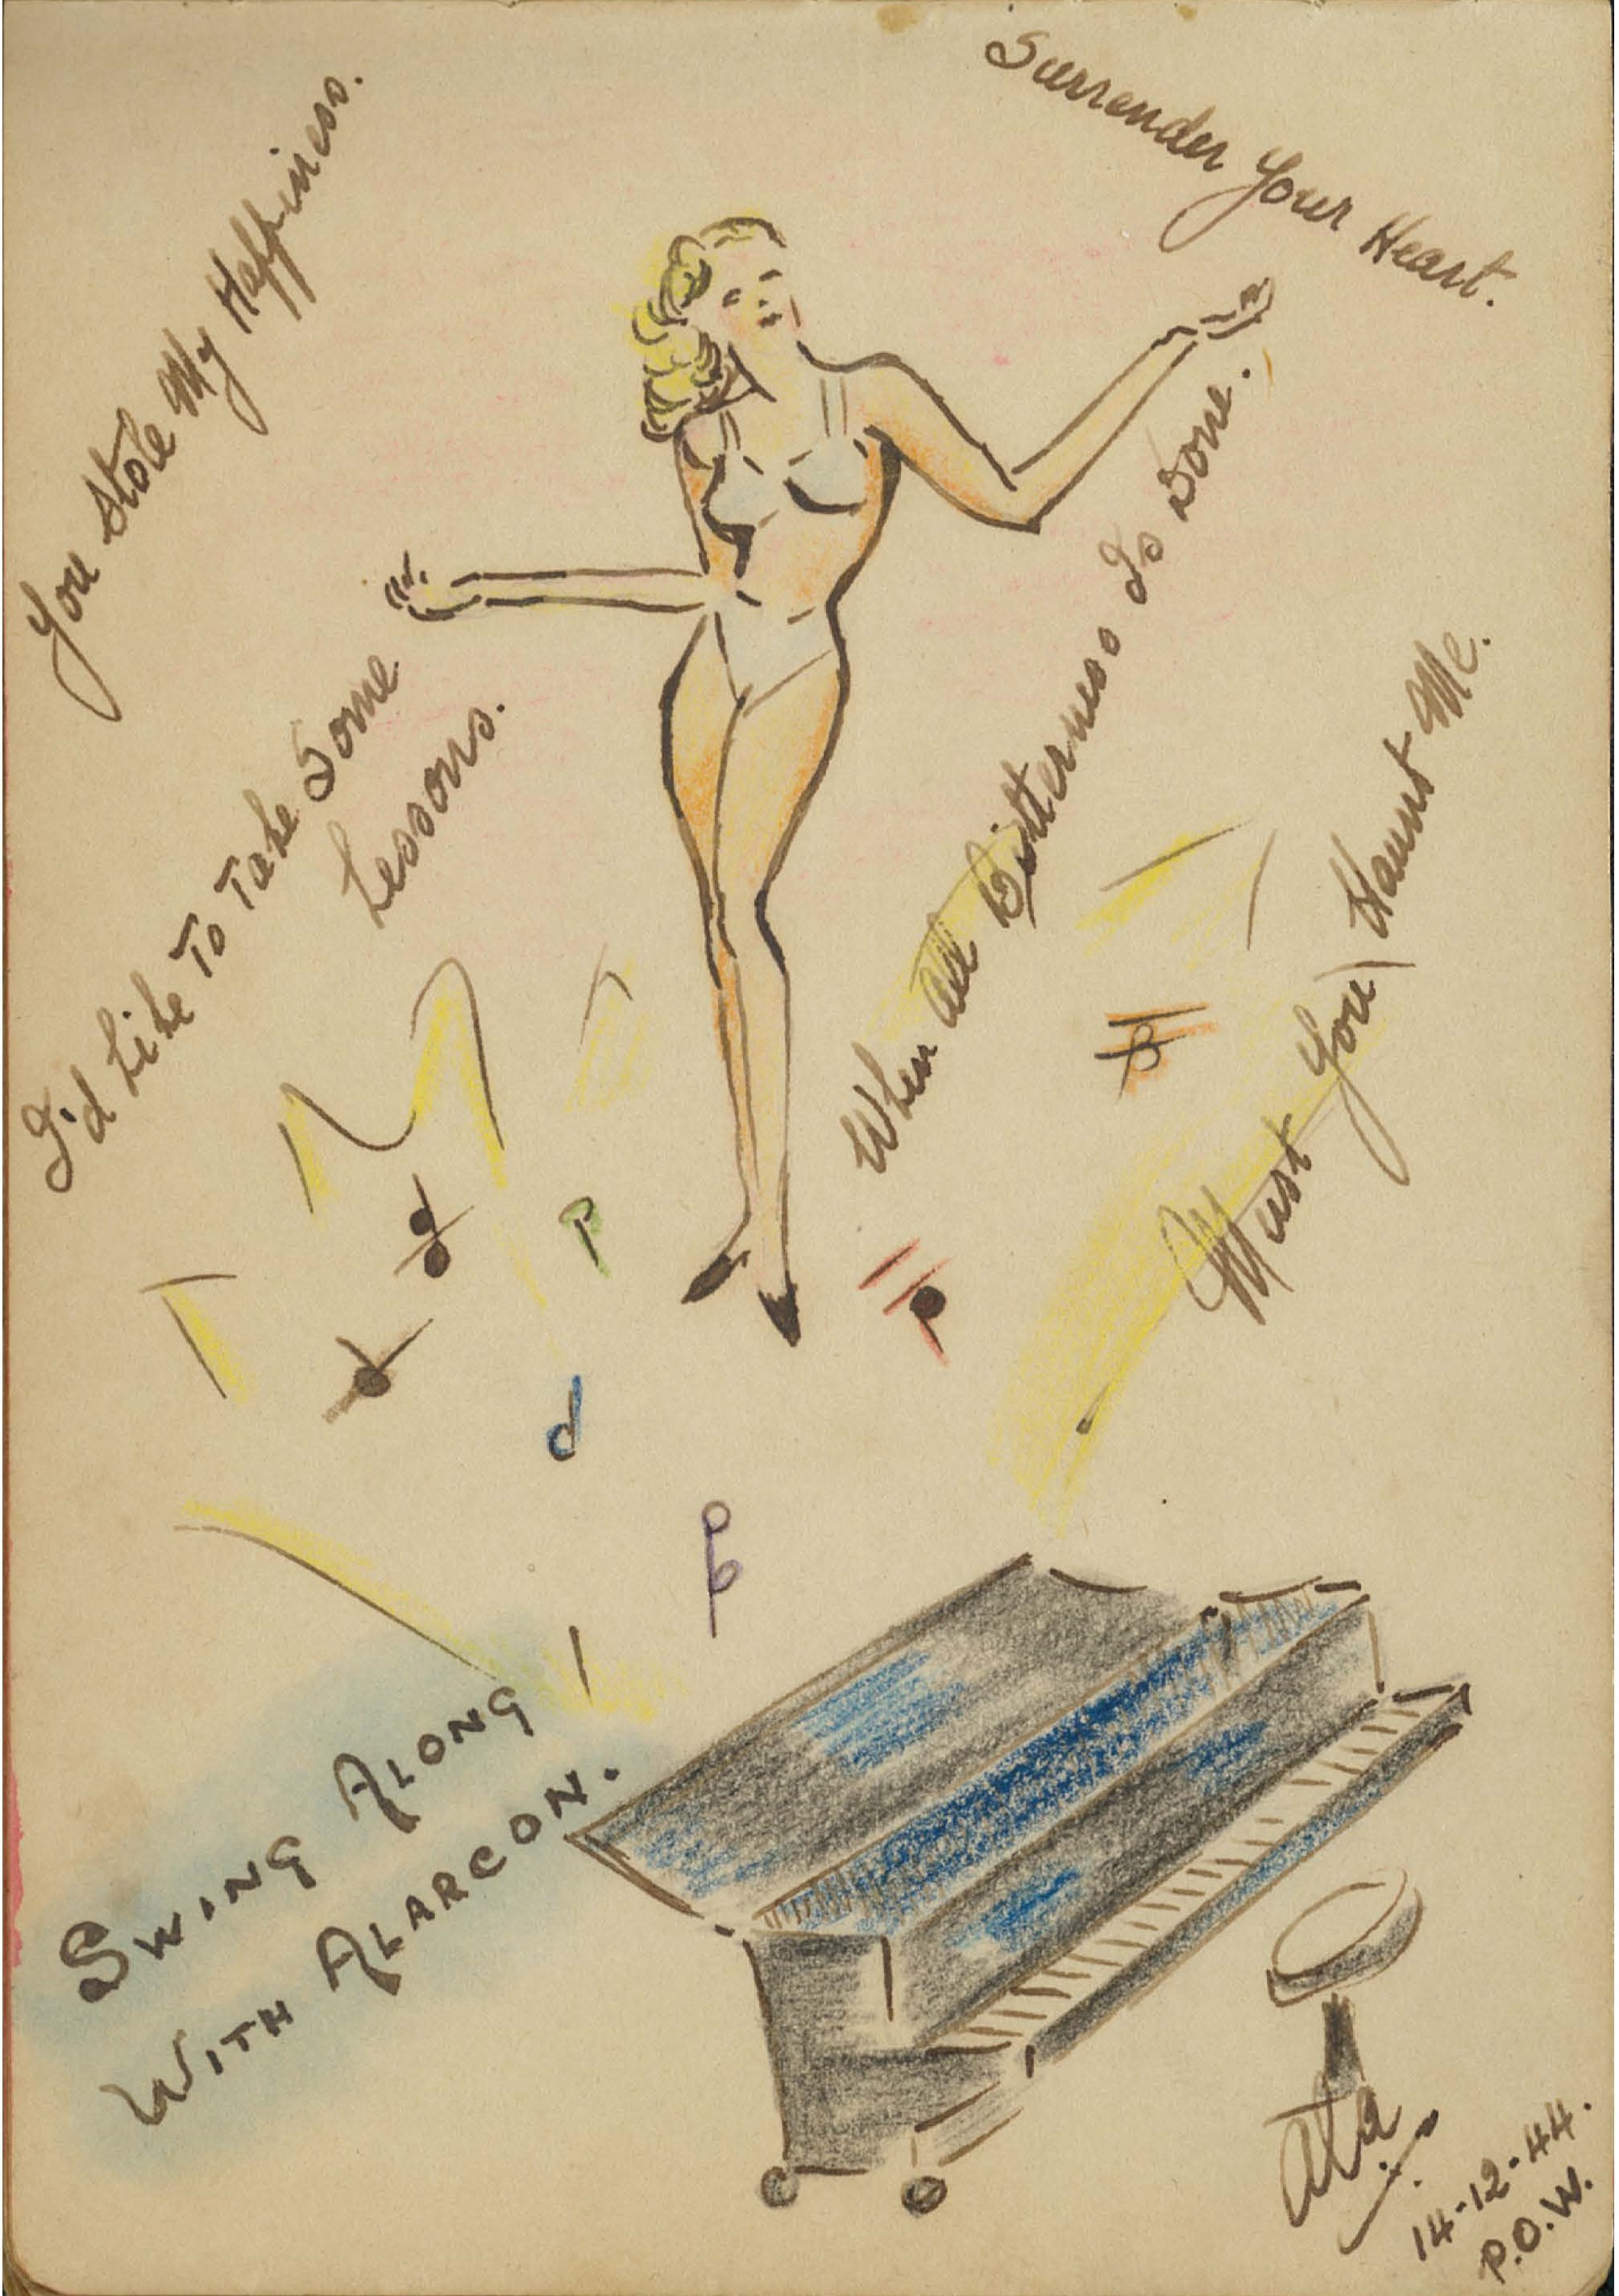 Surrender Your Heart.
You Stole My Happiness.
I'd Like To Take Some
Lessons.
When All Bitterness Is Done.
Must You Haunt Me.
Swing Along
With Alarcon.
14-12-44.
P.O.W.